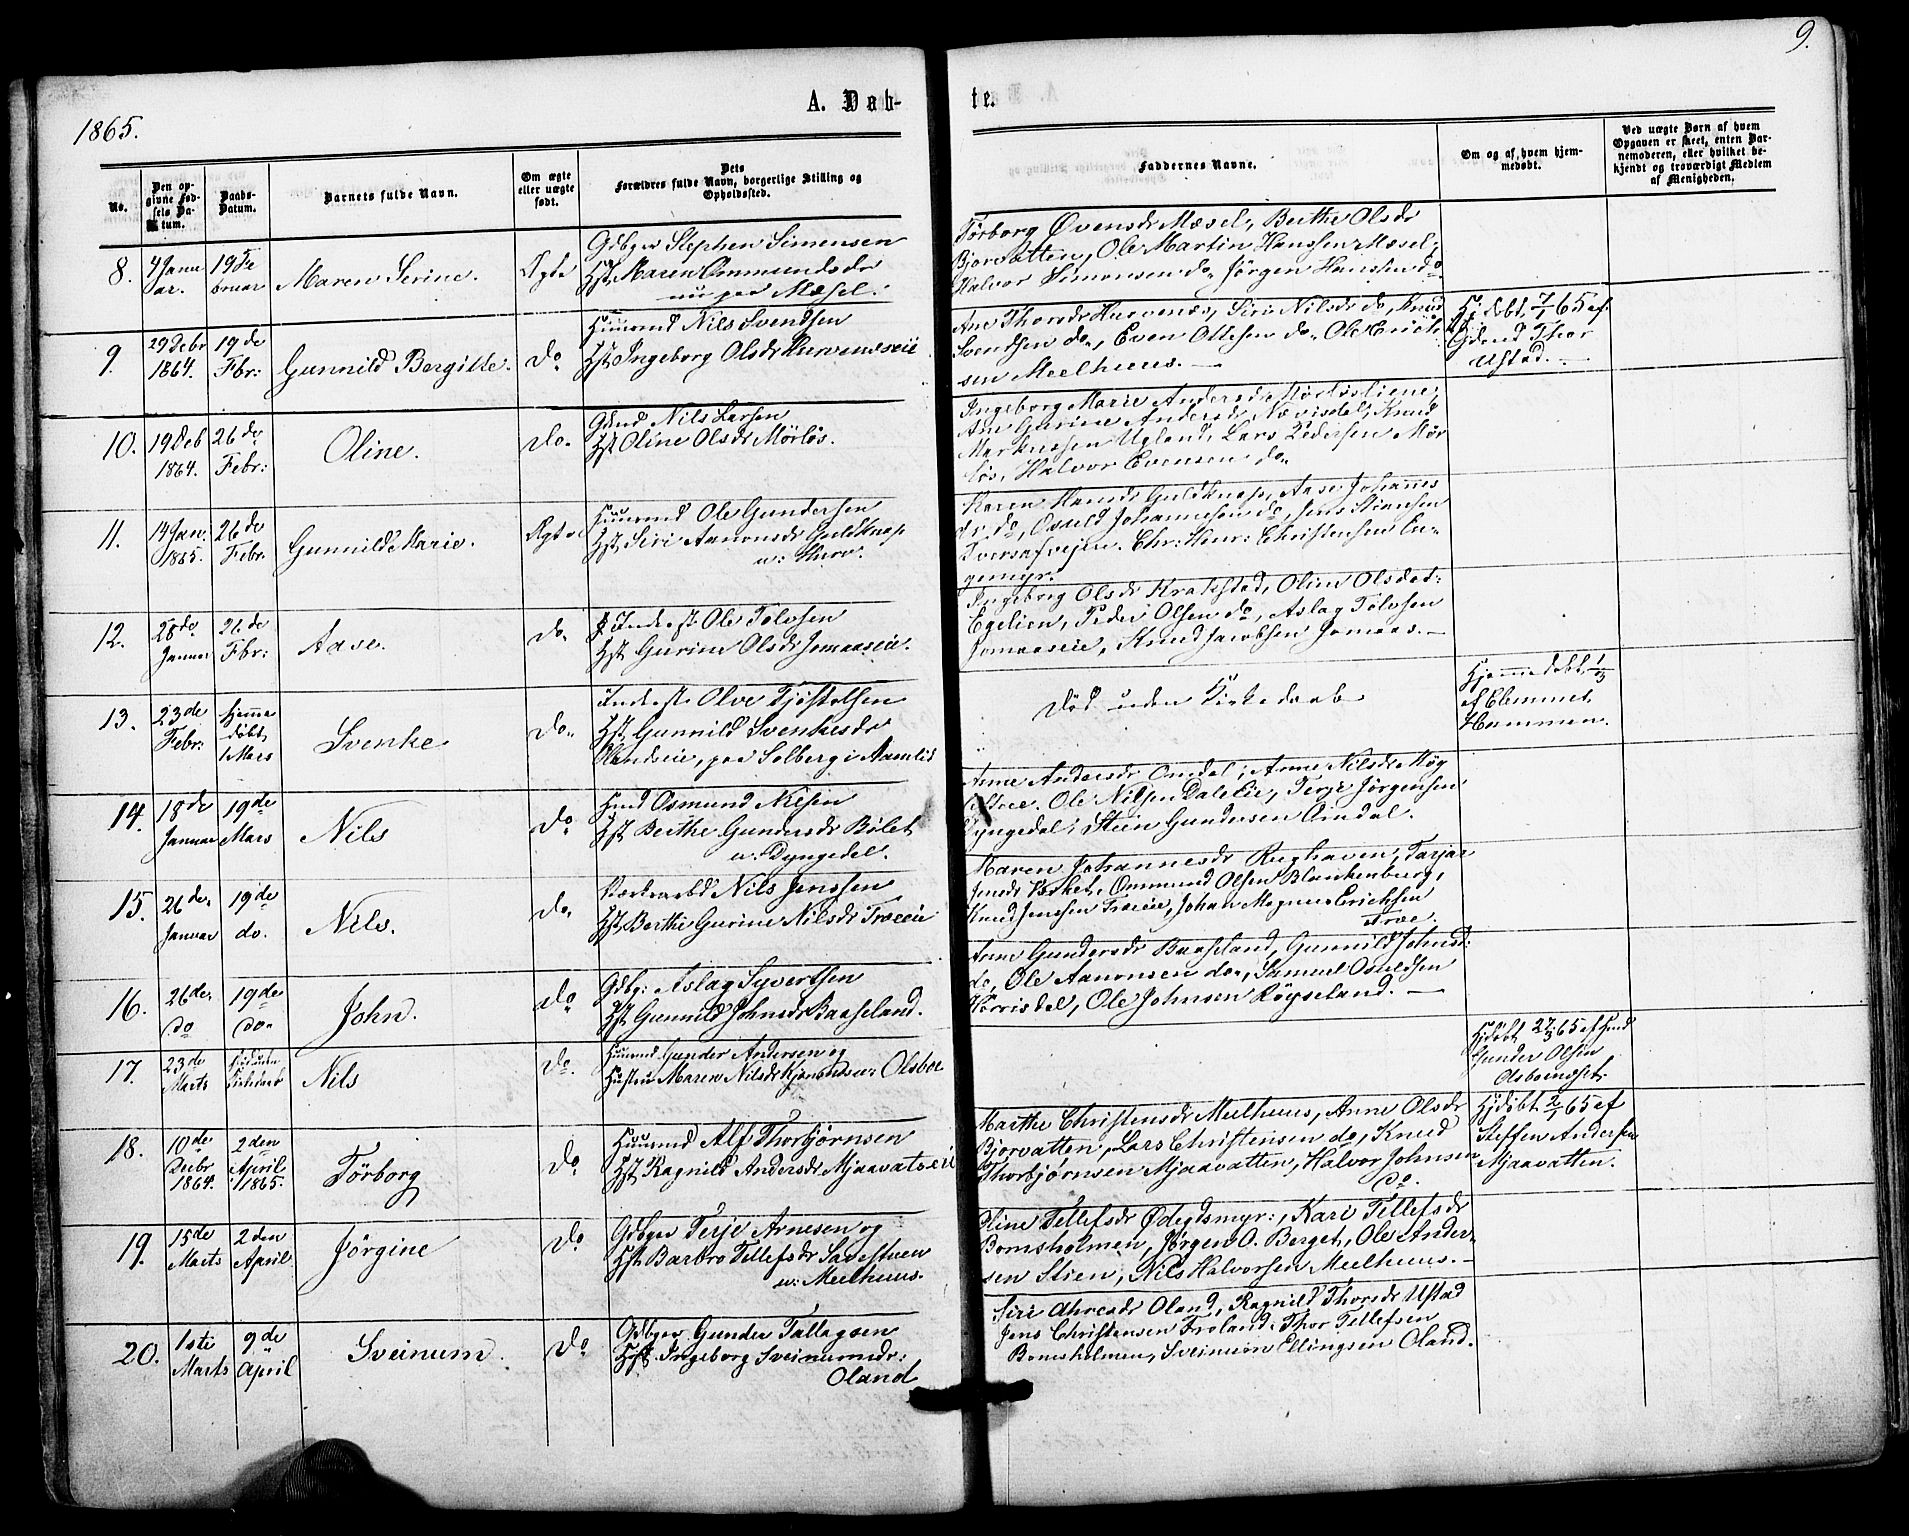 9.
A. Døb-
te.
1865.
No.
Den op-
givne Fød-
sels Da-
tum.
Daabs-
Datum.
Barnets fulde Navn.
Om ægte
eller uægte
født.
Dets
Forældres fulde Navn, borgerlige Stilling og
Opholdssted.
Faddernes Navne.
Om og af hvem hjem-
medøbt.
Ved uægte Børn af hvem
Opgaven er skeet, enten Bar-
nemoderen, eller hvilket be-
kjendt og troværdigt Medlem
af Menigheden.
8.
4 Janu
ar.
19 Fe
bruar
Maren Serine.
Ægte
Gdbger Stephen Simensen
Hst Maren Ommundsdr
nu paa Mæsel.
Torborg Øvensdr Mæsel, Berthe Olsdr
Bjorvatten, Ole Martin Hanssen Mæsel,
Halvor Simonsen do, Jørgen Hansen do
9.
29 Debr
1864.
19 de
Fbr:
Gunnild Bergitte.
do
Huusmd Nils Svendsen
Hst Ingeborg Olsdr Hurvenæseie
Ane Thorsdr Hurvenæs, Siri Nilsdr do, Knud
Svendsen do, Even Ottesen do, Ole Erick
sen Meelhuus.
Hjdøbt 7/1 65 af
Gdmd Thor
Ustad.
10.
19 Deb
1864.
26 de
Febr:
Oline.
do
Gdmd Nils Larsen
Hst Oline Olsdr Mörløs.
Ingeborg Marie Andersdr Mörløsliene,
Ane Gurine Andersdr Nævisdal, Knud
Markussen Ugland, Lars Pedersen Mör
løs, Halvor Evensen do
11.
14 Jan.
1865.
26 de
Febr.
Gunnild Marie.
Ægte
Huusmd Ole Gundersen
Hst Siri Aanonsdr Guldknap
u:
Karen Hansdr Guldknap, Aase Johannes
dr. do, Osuld Johannesen do, Jens Stiansen
Tversafvejen. Chr: Henr: Christensen En-
gemyr.
12.
28 de
Januar
26 de
Fbr:
Aase.
do
Inderst Ole Tolvsen
Hst Gurine Olsdr Jomaaseie.
Ingeborg Olsdr Krakstad, Oline Olsdat:
Egelien, Peder Olsen do, Aslag Tolvsen
Jomaaseie, Knud Jacobsen Jomaas.
13.
23 de
Febr:
Hjemme
døbt
1 Mars
Svenke
do
Inderst Olve Tjøstolsen
Hst Gunnild Svenkesdr
Olandseie, paa Solberg i Aamlid
Død uden Kirkedaab
Hjemmedøbt 1/3
af Clemmet
Hammen.
14.
18 de
Januar
19 de
Mars
Nils
do
Hmd Osmund Nilsen
Hst Berthe Gundersdr Bölet
u: Dyngedal.
Anne Andersdr Omdal, Anne Nilsdr Høg
Ole Nilsen Daleeie, Terje Jörgensen
Dyngedal, Stein Gundersen Omdal.
15.
26 de
Januar
19 de
do.
Nils.
do
Værksarbd Nils Jenssen
Hst Berthe Gurine Nilsdr Træeie
Maren Johannesdr Rughaven, Tarjar
Jensdr Værket, Ommund Olsen Blankenberg,
Knud Jenssen Træeie, Johan Magnus Erichsen
Træ.
16.
26 de
do
19 de
do
John.
do
Gdbg: Aslag Syvertsen
Hst Gunnild Johnsdr Baaseland.
Anne Gundersdr Baaseland, Gunnild Johnsd:
do, Ole Aanonsen do, Samuel Osuldsen
Herrisdal, Ole Johnsen Røyseland.
17.
23 de
Marts
Død uden
Kirkedaab
Nils
do
Huusmd Gunder Andersen og
Hustru Maren Nilsdr u: Olsboe
Hjdøbt 27/3 65 af Hmd
Gunder Olsen
Osbomoset.
18.
10 de
Decbr
1864.
2 den
April
1865.
Törborg
do
Huusmd Alf Thorbjørnsen
Hst Ragnild Andersdr Mjaavatseie
Marthe Christensdr Meelhuus, Anne Olsdr
Bjorvatten, Lars Christensen do, Knud
Thorbjørnsen Mjaavatten, Halvor Johnsen
do.
Hjdøbt 2/1 65 af
Steffen Andersen
Mjaavatten.
19.
15 de
Marts
2 den
April
Jörgine
do
Gdbger Terje Arnesen og
Hst Barbro Tellefsdr
u: Meelhuus.
Oline Tellefsdr Ødegdsmyr:, Kari Tellefsdr
Bomsholmen, Jørgen O. Berget, Ole Ander-
sen Stien, Nils Halvorsen Meelhuus.
20.
1ste
Marts
9 de
April
Sveinum.
do
Gdbger Gunder Tallagsen
Hst Ingeborg Sveinumsdr:
Oland
Siri Oland, Ragnild Thorsdr Ustad
Jens Christensen Froland, Thor Tellefsen
Bomsholmen, Sveinum Ellingsen Oland.